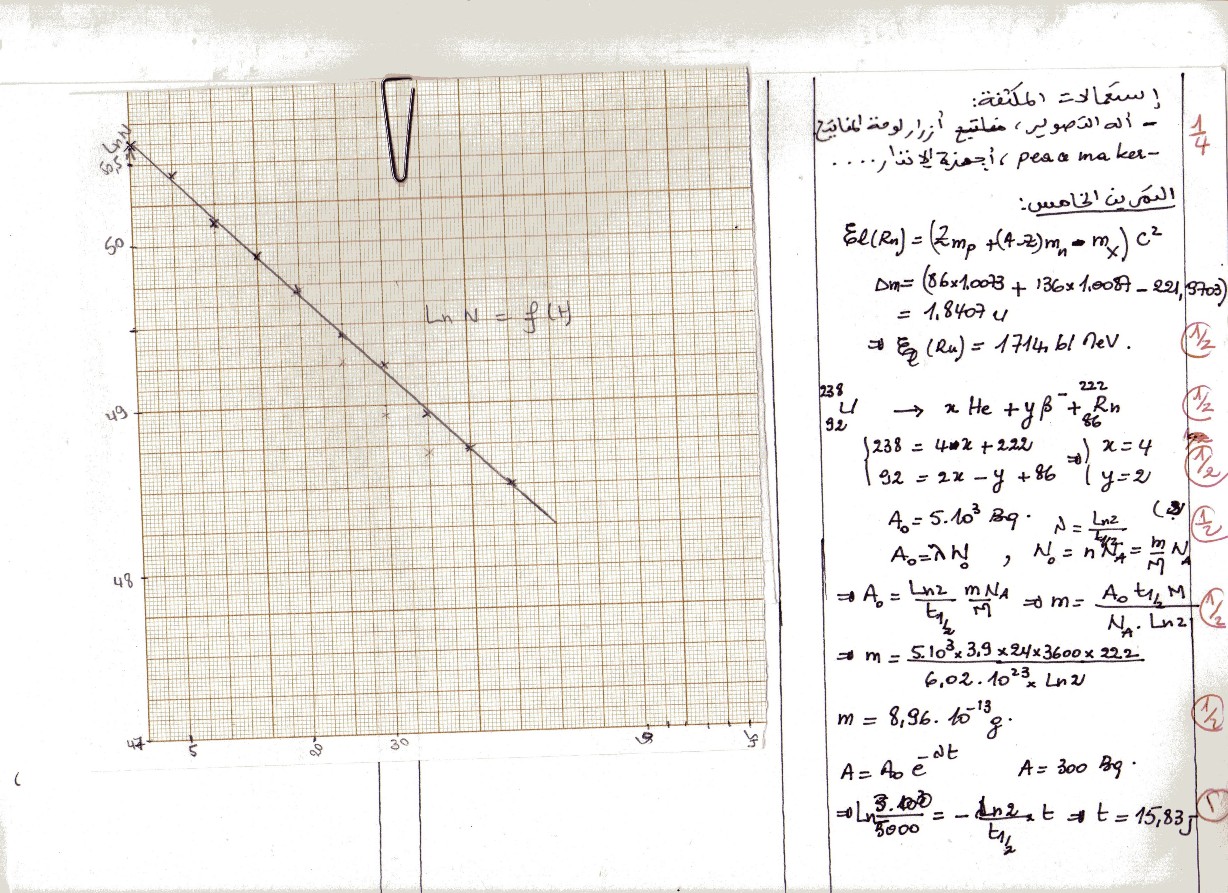 Ln N
50
Ln N = f(t)
49
48
47
5
20
30
إستعمالات المكثفة:
- آلة التصوير، مفاتيح أزرار لوحة المفاتيح
1/4
peace maker، أجهزة الإنذار ....
التمرين الخامس:
El(Rn) = (Zmp + (A-Z)mn - mx) C²
Δm = (86×1.0073 + 136×1.0087 - 221,9703)
= 1.8407 u
⇒ El (Rn) = 1714,61 MeV.
1/2
²³⁸₉₂U → x He + y β⁻ + ²²²₈₆Rn
1/2
{238 = 4x + 222 ⇒ { x = 4
92 = 2x - y + 86 { y = 2
1/2
A₀ = 5.10³ Bq. λ = Ln2/t1/2
1/2
A₀ = λ N₀ , N₀ = n NA = m/M NA
⇒ A₀ = Ln2/t1/2 mNA/M ⇒ m = A₀ t1/2 M / NA . Ln2
1/2
⇒ m = 5.10³ × 3.9 × 24 × 3600 × 222 / 6,02.10²³ × Ln2
m = 8,96. 10⁻¹³ g.
1/2
A = A₀ e^-λt A = 300 Bq.
⇒ Ln 300/5000 = - Ln2/t1/2 × t ⇒ t = 15,83 j
1